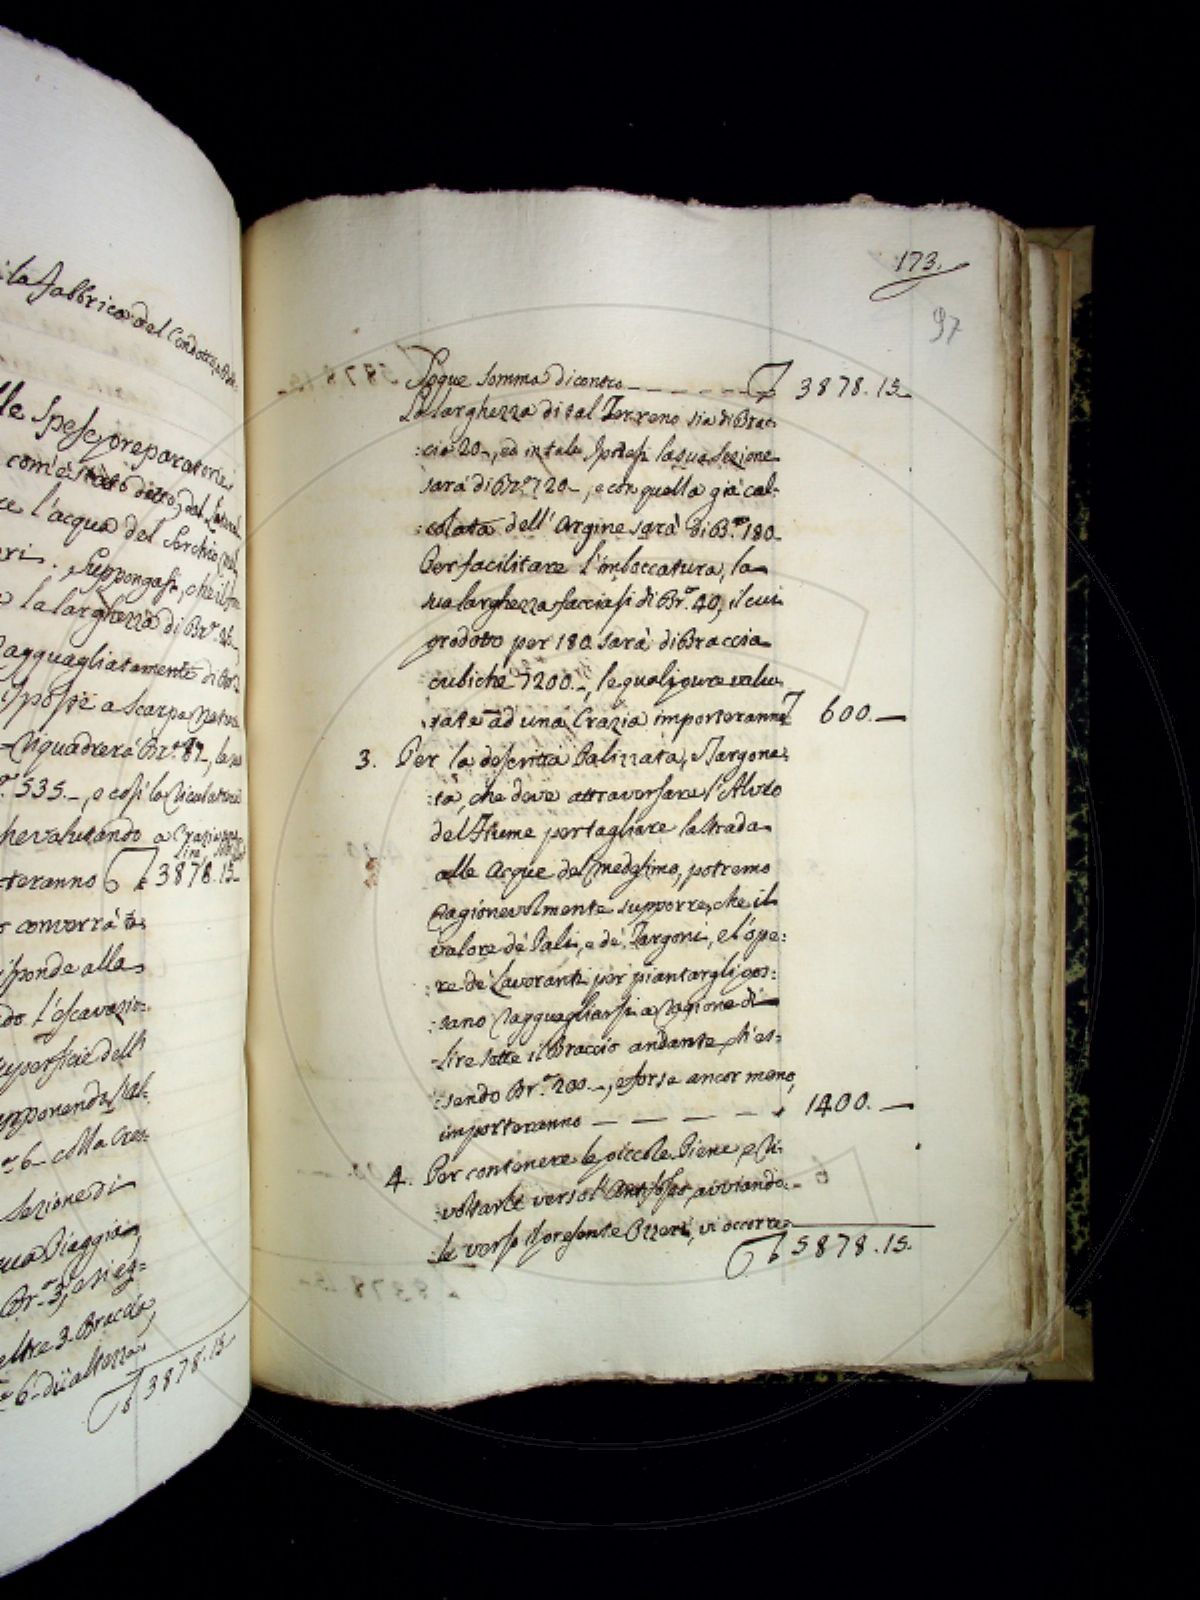 la Fabbrica del Condotto
lle Spese preparatorie
com'è stato detto, dal
ce l'acqua del Serchio
eri. Suppongasi, che il
la larghezza di Br.
Ragguagliatamente di
a scarpa
Riquadrerà Br. 87,
535. _, e così la
che valutando a Crazie
Lire
teranno 3878.15
converrà
isponde alla
do l'escavazio:
uperficie dell
upponendosi
6 colla
Sezione di
Piaggia
Br. 3,
altre 3 Braccia,
6 di altezza
3878.15
173.
97
Segue somma di contro 3878.15
La larghezza di tal Terreno sia di Brac:
:cia 20_, ed in tale Ipotesi la sua Sezione
sarà di Br. 120_, e con quella già cal:
:colata dell'Argine sarà di B. 180
Per facilitare l'imboccatura, la
sua larghezza facciasi di Br. 40, il cui
prodotto per 180. sarà di Braccia
cubiche 7200._, le quali pure valu:
:tate ad una Crazia importeranno 600._
3. Per la descritta Palizzata, e Targona:
:ta, che deve attraversare l'Alveo
del Fiume per tagliare la strada
alle Acque del medesimo, potremo
ragionevolmente supporre, che il
valore de' Pali, e de' Targoni, e l'ope:
:re de' Lavoranti per piantargli pos:
:sano ragguagliarsi a ragione di
Lire sette il Braccio andante, ch'es:
:sendo Br. 200._, e forse ancor meno,
importeranno 1400._
4. Per contenere le piccole Piene, e ri:
:voltarle verso l' avviando:
:le verso il presente Ozzeri, vi occorre
5878.15.